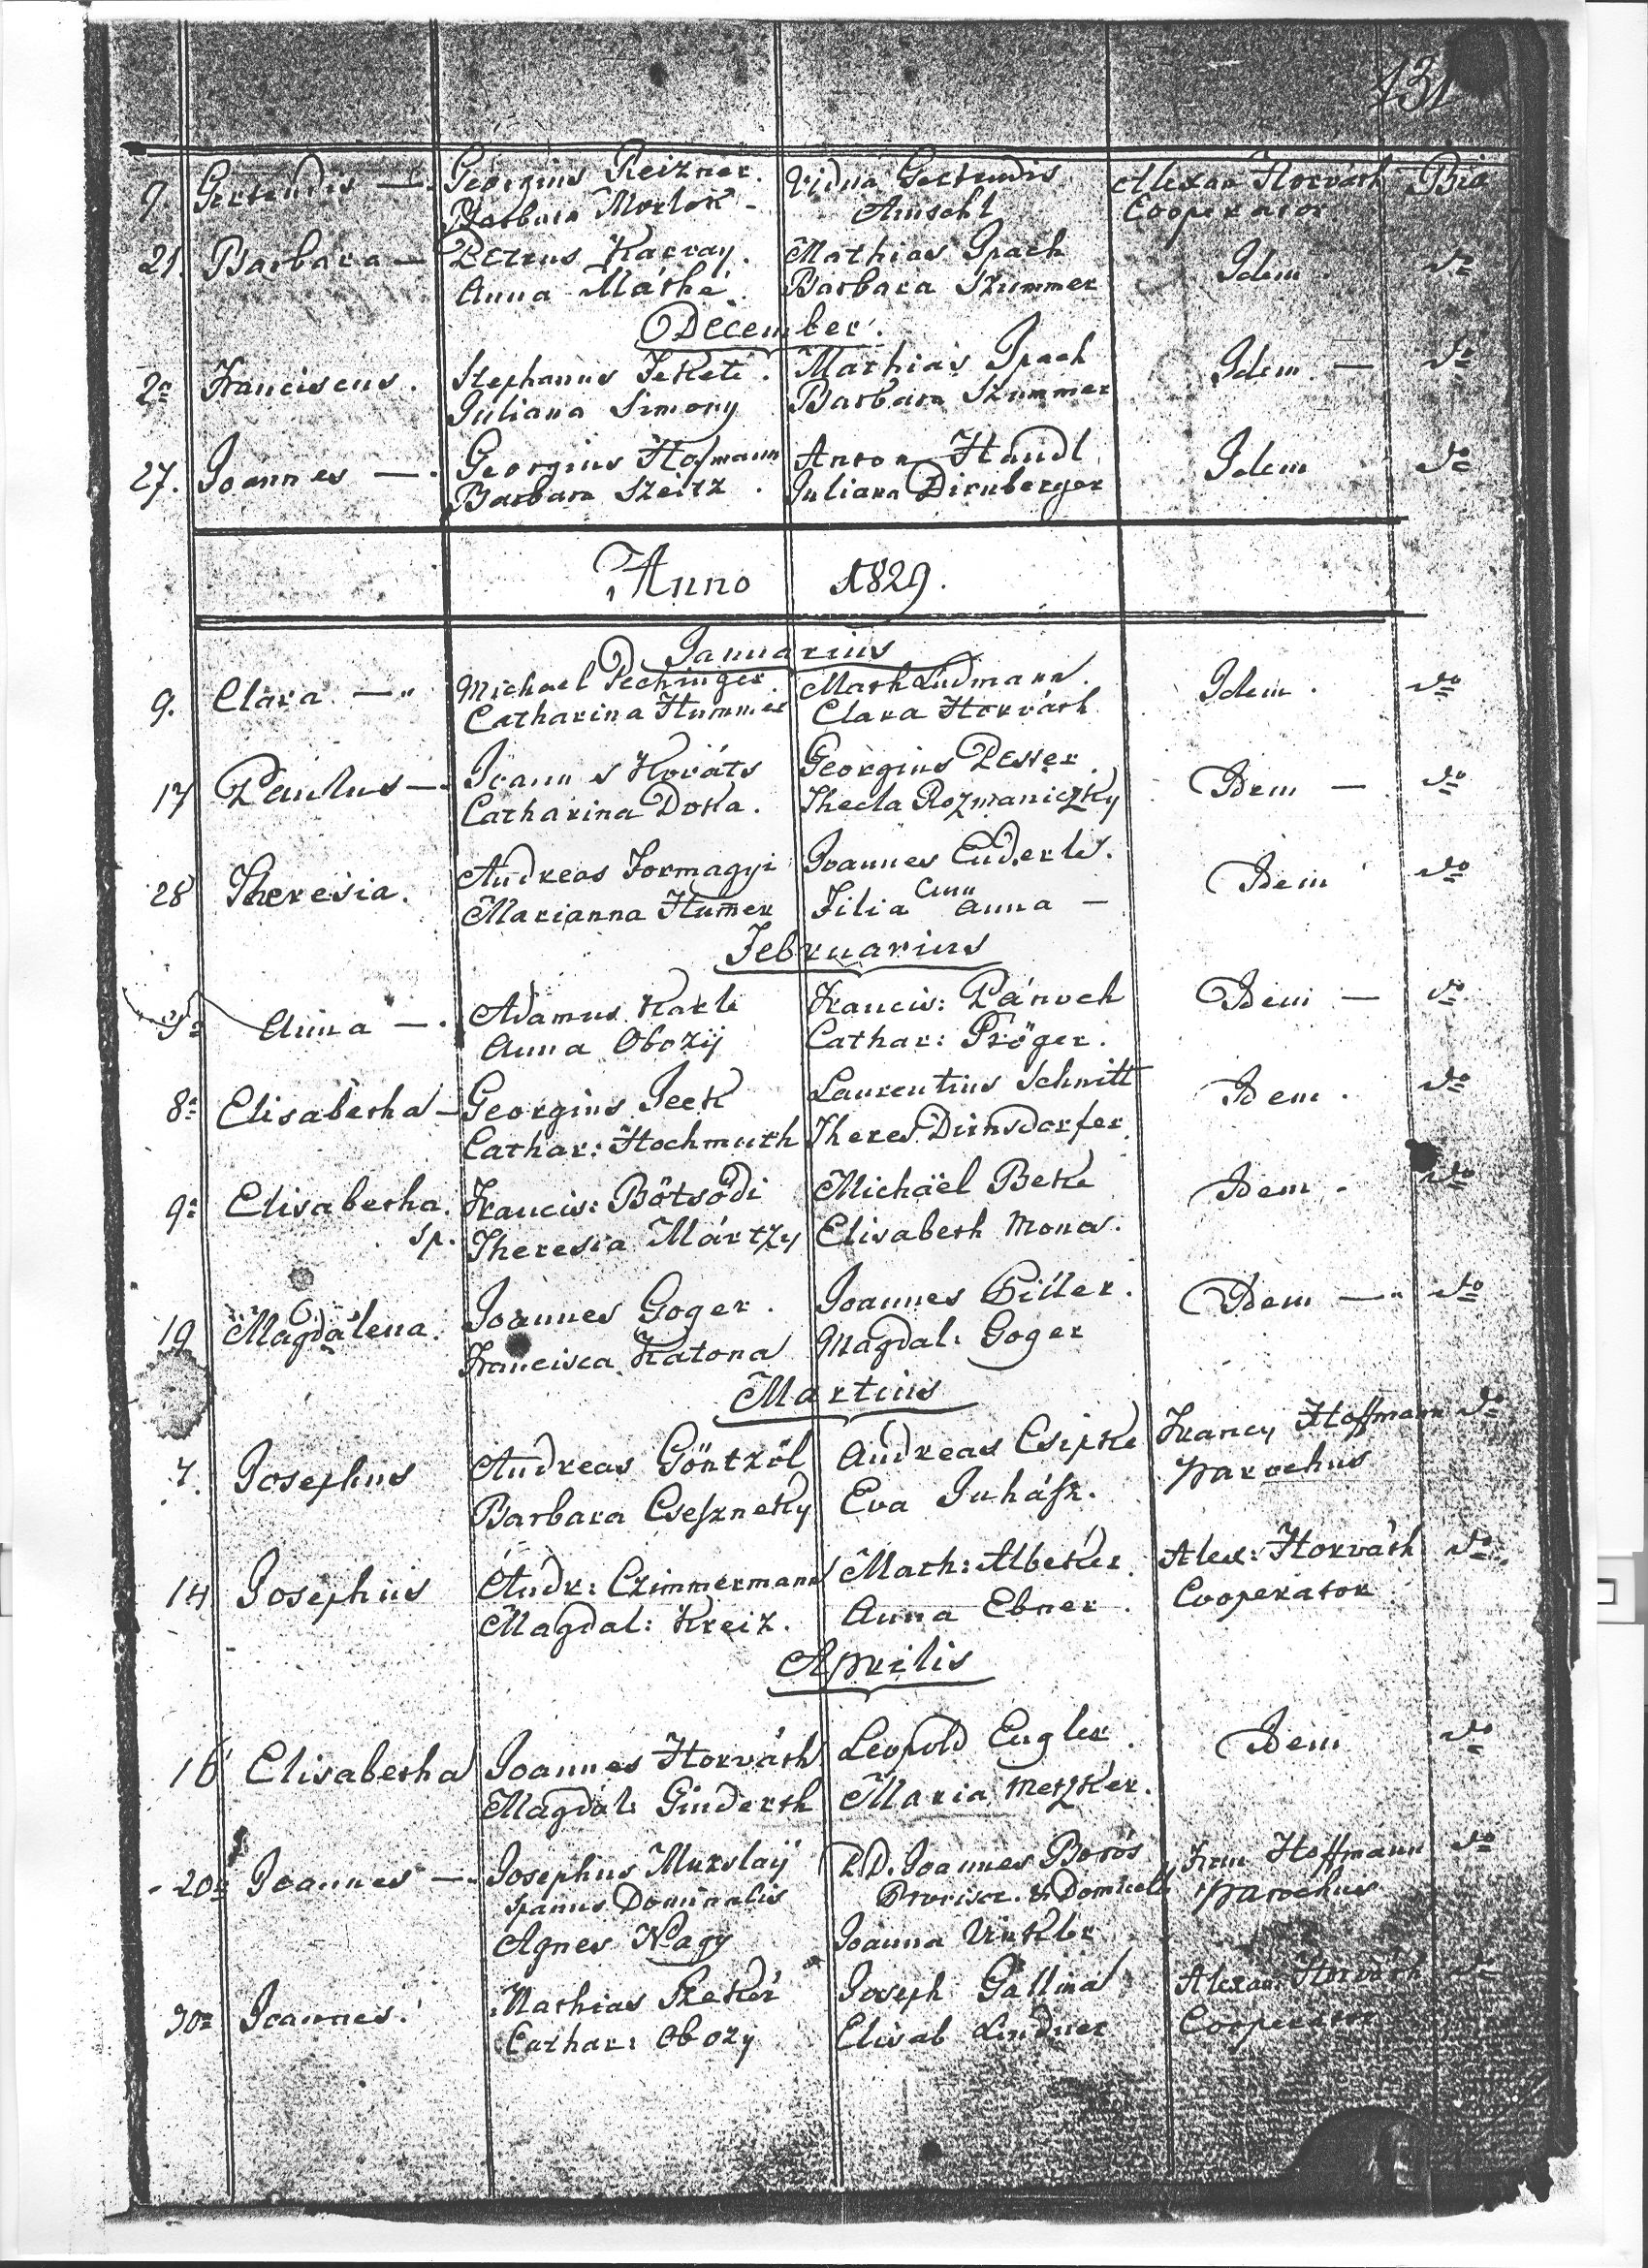 131
9. Gertrudis — Georgius Reizner. Vidua Gertrudis Alexan Horváth Bia
Barbara Morlok - Amsehl Cooperator
21. Barbara — Petrus Karvay. Mathias Spach Idem. do
Anna Máthé. Barbara Szummer
December.
2a Franciscus. Stephanus Feketé. Mathias Spach Idem — do
Juliana Simony Barbara Szummer
27. Joannes — Georgius Hofmann Anton Handl Idem do
Barbara Szeitz. Juliana Dirnberger
Anno 1829.
Januarius
9. Clara — Michael Pechinger. Math Ludmann. Idem. do
Catharina Hummer Clara Horváth
17 Paulus — Joannes Kováts Georgius Desser. Idem — do
Catharina Doka. Thecla Rozmaniczky
28 Theresia. Andreas Formagyi Joannes Enderle. Idem do
Marianna Humer Filia cum Anna —
Februarius
Anna — Adamus Karle Francis: Pánoch Idem — do
Anna Obozÿ Cathar: Pröger.
8a Elisabetha — Georgius Feek Laurentius Schmitt Idem. do
Cathar: Hochmuth Theres Dirnsdorfer
9a Elisabetha. Francis: Bötsödi Michäel Beke Idem. do
Sp. Theresia Mártzy Elisabeth Mona.
19 Magdalena. Joannes Goger. Joannes Piller. Idem — do
Francisca Katona Magdal: Goger
Martius
7. Josephus Andreas Göntzöl Andreas Csipke Franc Hoffmann do
Barbara Cseszneky Eva Juhász. parochus
14 Josephus Andr: Czimmermann Math: Albeker. Alex: Horváth do
Magdal: Kreiz. Anna Ebner. Cooperator
Aprilis
16 Elisabetha Joannes Horváth Leopold Engler. Idem do
Magdal: Ginderth Maria Metzker.
20a Joannes — Josephus Murslaÿ P.D. Joannes Borós Fran Hoffmann do
spanus Dominalis Provisor. parochus
Agnes Nagy Joanna Vinkler
30a Joannes. Mathias Szekér Joseph Gallina Alexan Horváth do
Cathar: Obozy Elisab Lindner Cooperator